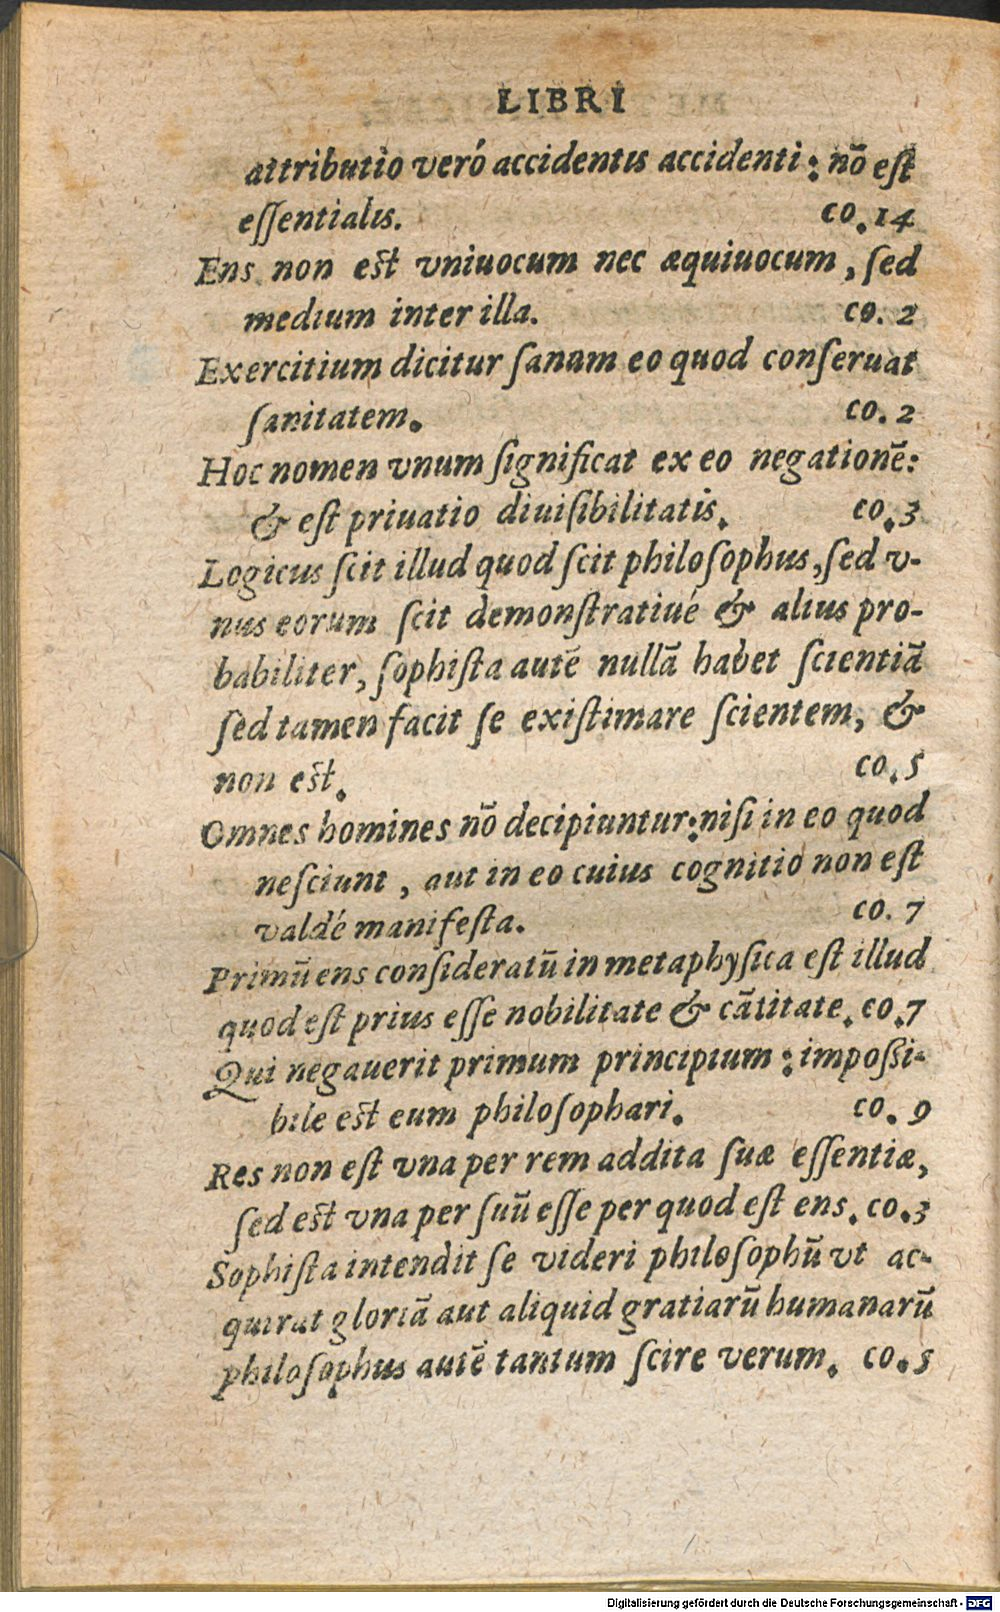 LIBRI
attributio veró accidentis accidenti: nõ est
essentialis. co. 14
Ens non est vniuocum nec æquiuocum, sed
medium inter illa. co. 2
Exercitium dicitur sanum eo quod conseruat
sanitatem. co. 2
Hoc nomen vnum significat ex eo negationẽ:
& est priuatio diuisibilitatis. co. 3
Logicus scit illud quod scit philosophus, sed v-
nus eorum scit demonstratiué & alius pro-
babiliter, sophista autẽ nullã habet scientiã
sed tamen facit se existimare scientem, &
non est. co. 5
Omnes homines nõ decipiuntur: nisi in eo quod
nesciunt, aut in eo cuius cognitio non est
valdé manifesta. co. 7
Primũ ens consideratũ in metaphysica est illud
quod est prius esse nobilitate & cãtitate. co. 7
Qui negauerit primum principium: impossi-
bile est eum philosophari. co. 9
Res non est vna per rem addita suæ essentiæ,
sed est vna per suũ esse per quod est ens. co. 3
Sophista intendit se videri philosophũ vt ac-
quirat gloriã aut aliquid gratiarũ humanarũ
philosophus autẽ tantum scire verum. co. 5
Digitalisierung gefördert durch die Deutsche Forschungsgemeinschaft - DFG